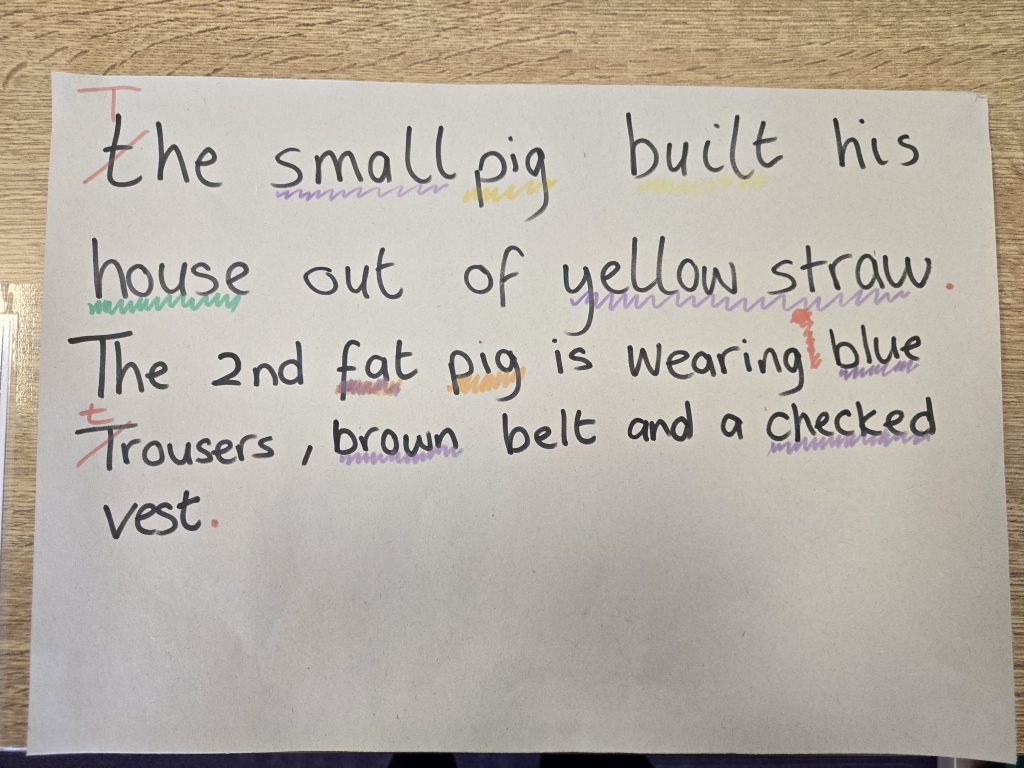 T
the small pig built his
house out of yellow straw.
The 2nd fat pig is wearing blue
t
Trousers, brown belt and a checked
vest.